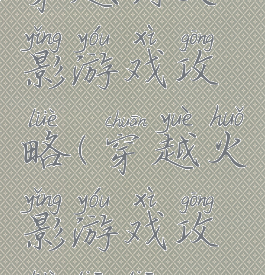 yǐng yóu xì gōng
影游戏攻
lüè chuān yuè huǒ
略(穿越火
yǐng yóu xì gōng
影游戏攻